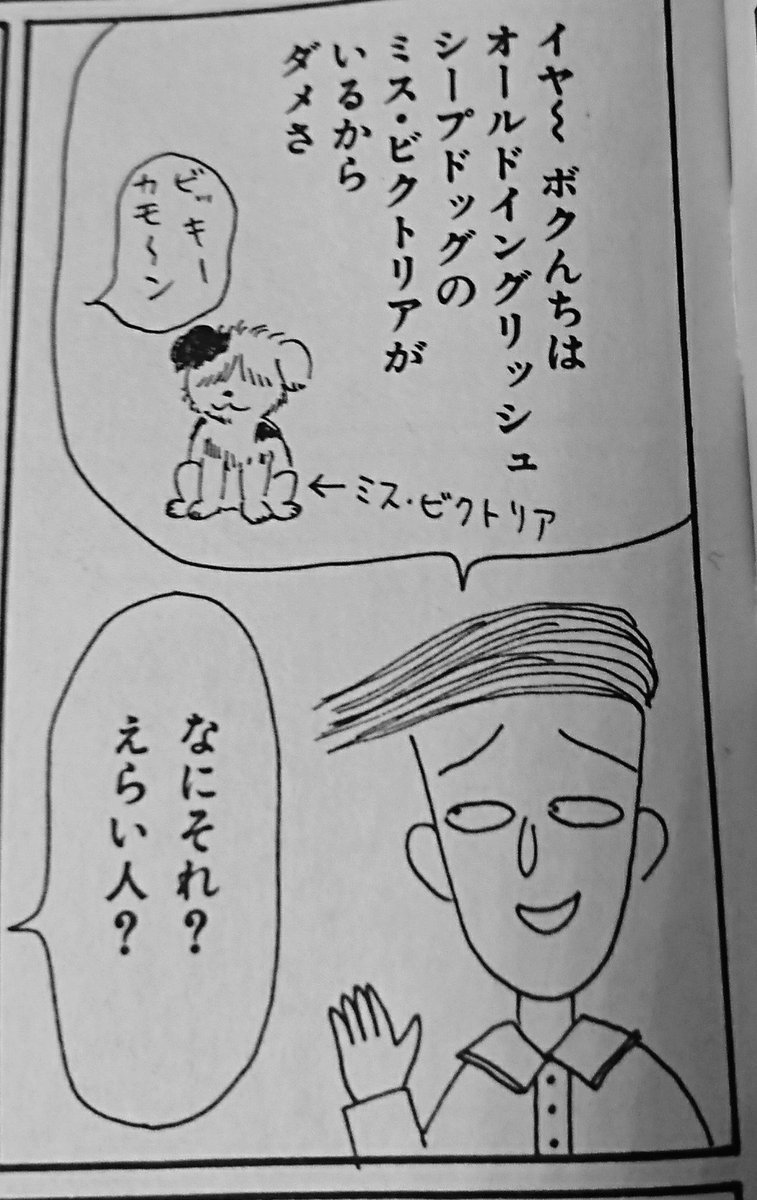 イヤ〜 ボクんちは
オールドイングリッシュ
シープドッグの
ミス・ビクトリアが
いるから
ダメさ
ビッキー
カモ〜ン
←ミス・ビクトリア
なにそれ？
えらい人？